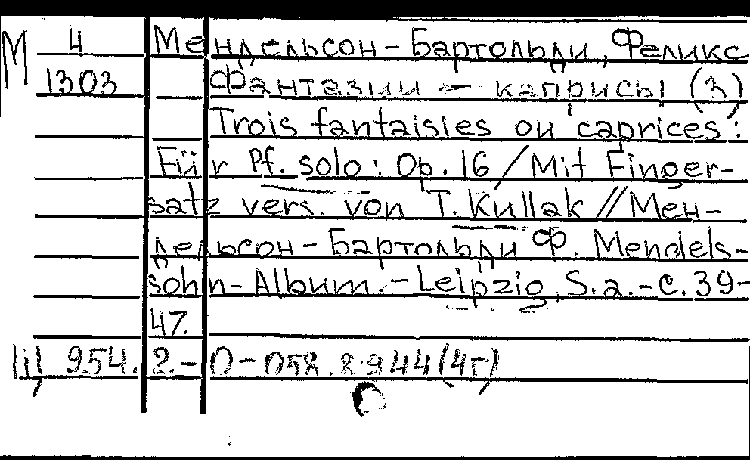 М 4 Мендельсон-Бартольди, Феликс
1303 Фантазии - каприсы (3)
Trois fantaisies ou caprices:
Für Pf. solo: Op. 16 / Mit Finger-
satz vers. von T. Kullak // Мен-
дельсон-Бартольди Ф. Mendels-
sohn-Album. - Leipzig, S. a. - с. 39-
47.
954. 2. - 0 - 058. 8 944 (4г)